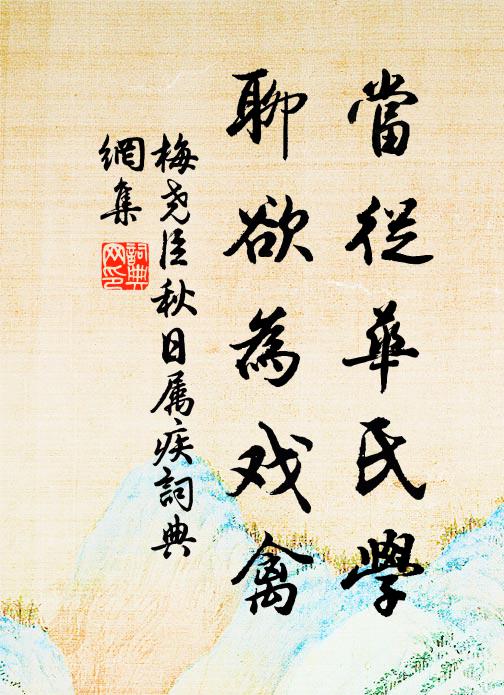 當從華氏學
聊欲為戏禽
梅尧臣秋日属疾詞典
網集
詞典
网印